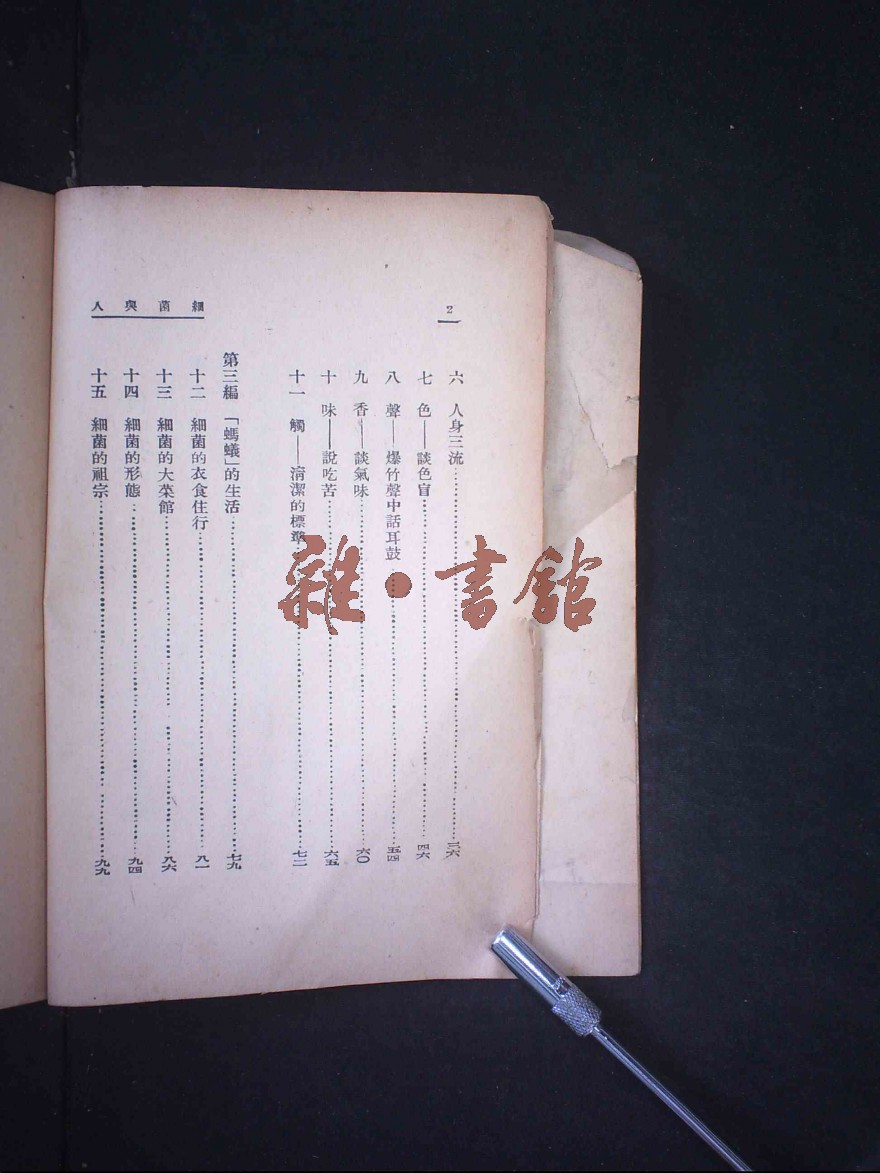 細菌與人
2
六　人身三流……三六
七　色——談色盲……四六
八　聲——爆竹聲中話耳鼓……五四
九　香——談氣味……六〇
十　味——說吃苦……六五
十一　觸——清潔的標準……七二
第三編　「螞蟻」的生活……七九
十二　細菌的衣食住行……八一
十三　細菌的大菜館……八六
十四　細菌的形態……九四
十五　細菌的祖宗……九九
雜·書館